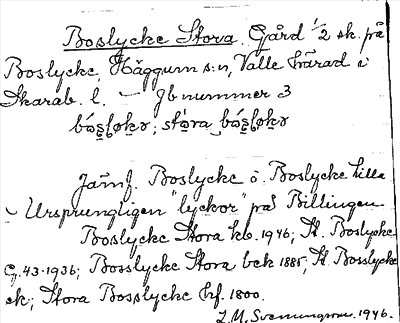 Boslycke Stora. Gård 1/2 sk. på
Boslycke, Häggum s:n, Valle härad i
Skarab. l. — Jb nummer 3
Jämf. Boslycke o. Boslycke Lilla
– Ursprungligen "lyckor" på Billingen
Boslycke Stora kb. 1946; St. Boslycke
G. 43 - 1936; Bosslycke Stora bek 1885; St. Bosslycke
ek; Stora Bosslycke hf. 1800.
L. M. Svenungsson. 1946.